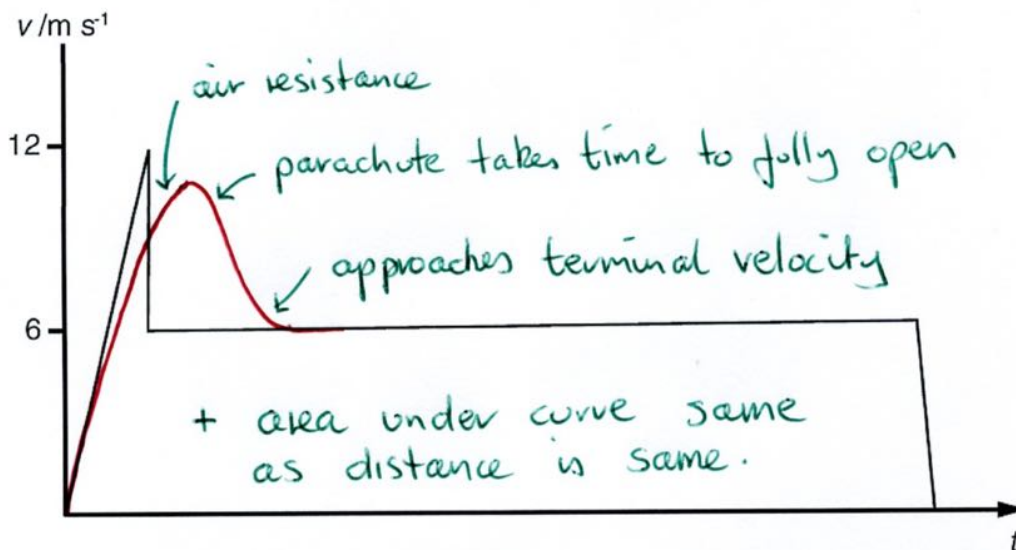 v /m s⁻¹
air resistance
12
parachute takes time to fully open
approaches terminal velocity
6
+ area under curve same
as distance is same.
t